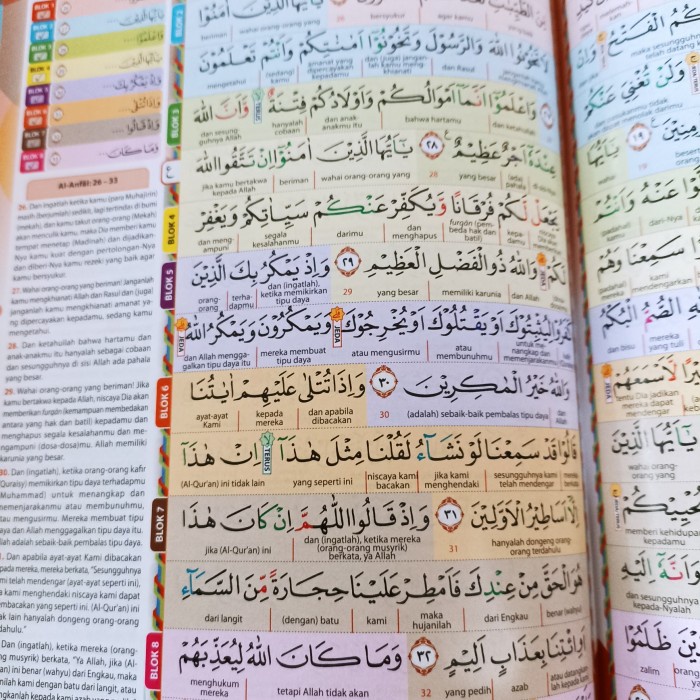 BLOK 1
BLOK 3
BLOK 4
BLOK 5
BLOK 6
BLOK 7
BLOK 8
وَاعْلَمُوْٓا
وَاِذْ يَمْكُرُ بِكَ
وَاِذَا تُتْلٰى
وَاِذْ قَالُوا
وَمَا كَانَ
Al-Anfāl: 26 - 33
26. Dan ingatlah ketika kamu (para Muhajirin)
masih (berjumlah) sedikit, lagi tertindas di bumi
(Mekah), dan kamu takut orang-orang (Mekah)
akan menculik kamu, maka Dia memberi kamu
tempat menetap (Madinah) dan dijadikan-
Nya kamu kuat dengan pertolongan-Nya
dan diberi-Nya kamu rezeki yang baik agar
kamu bersyukur.
27. Wahai orang-orang yang beriman! Janganlah
kamu mengkhianati Allah dan Rasul dan (juga)
janganlah kamu mengkhianati amanat ya-
ng dipercayakan kepadamu, sedang kamu
mengetahui.
28. Dan ketahuilah bahwa hartamu dan
anak-anakmu itu hanyalah sebagai cobaan
dan sesungguhnya di sisi Allah ada pahala
yang besar.
29. Wahai orang-orang yang beriman! Jika
kamu bertakwa kepada Allah, niscaya Dia akan
memberikan furqān (kemampuan membedakan
antara yang hak dan batil) kepadamu dan
menghapus segala kesalahanmu dan me-
ngampuni (dosa-dosa)mu. Allah memiliki
karunia yang besar.
30. Dan (ingatlah), ketika orang-orang kafir
(Quraisy) memikirkan tipu daya terhadapmu
(Muhammad) untuk menangkap dan
memenjarakanmu atau membunuhmu,
atau mengusirmu. Mereka membuat tipu
daya dan Allah menggagalkan tipu daya itu.
Allah adalah sebaik-baik pembalas tipu daya.
Dan apabila ayat-ayat Kami dibacakan
kepada mereka, mereka berkata, "Sesungguhnya
kami telah mendengar (ayat-ayat seperti ini),
kami menghendaki niscaya kami dapat
membacakan yang seperti ini. (Al-Qur'an) ini
tidak lain hanyalah dongeng orang-orang
terdahulu."
Dan (ingatlah), ketika mereka (orang-
orang musyrik) berkata, "Ya Allah, jika (Al-
Qur'an) ini benar (wahyu) dari Engkau, maka
hujanilah kami dengan batu dari langit, atau
BLOK 2
يٰٓاَيُّهَا الَّذِيْنَ اٰمَنُوْا
beriman wahai orang-orang yang 26 bersyukur agar kamu
تَخُوْنُوا اللّٰهَ وَالرَّسُوْلَ وَتَخُوْنُوْٓا اَمٰنٰتِكُمْ وَاَنْتُمْ تَعْلَمُوْنَ
mengetahui (sedang) kamu amanat yang dipercayakan kepadamu dan (juga) janganlah kamu mengkhianati dan Rasul
BLOK 3
وَاعْلَمُوْٓا اَنَّمَآ اَمْوَالُكُمْ وَاَوْلَادُكُمْ فِتْنَةٌ وَّاَنَّ اللّٰهَ
TERUS
dan sesungguhnya Allah hanyalah cobaan dan anak-anakmu itu bahwa hartamu dan ketahuilah
عِنْدَهٗٓ اَجْرٌ عَظِيْمٌ ٢٨ يٰٓاَيُّهَا الَّذِيْنَ اٰمَنُوْٓا اِنْ تَتَّقُوا اللّٰهَ
jika kamu bertakwa kepada Allah beriman wahai orang-orang yang 28 yang besar (ada) pahala
BLOK 4
يَجْعَلْ لَّكُمْ فُرْقَانًا وَّيُكَفِّرْ عَنْكُمْ سَيِّاٰتِكُمْ وَيَغْفِرْ
dan mengampuni segala kesalahanmu darimu dan menghapus furqān (pembeda hak dan batil) kepadamu
BLOK 5
لَكُمْ وَاللّٰهُ ذُو الْفَضْلِ الْعَظِيْمِ ٢٩ وَاِذْ يَمْكُرُ بِكَ الَّذِيْنَ
orang-orang terhadapmu dan (ingatlah), ketika memikirkan tipu daya 29 yang besar memiliki karunia dan Allah
كَفَرُوْا لِيُثْبِتُوْكَ اَوْ يَقْتُلُوْكَ اَوْ يُخْرِجُوْكَ وَيَمْكُرُوْنَ وَيَمْكُرُ اللّٰهُ
JEDA JEDA
dan Allah menggagalkan tipu daya itu mereka membuat tipu daya atau mengusirmu atau membunuhmu untuk menangkap dan memenjarakanmu
BLOK 6
وَاللّٰهُ خَيْرُ الْمٰكِرِيْنَ ٣٠ وَاِذَا تُتْلٰى عَلَيْهِمْ اٰيٰتُنَا
ayat-ayat Kami kepada mereka dan apabila dibacakan 30 (adalah) sebaik-baik pembalas tipu daya dan Allah
قَالُوْا قَدْ سَمِعْنَا لَوْ نَشَاۤءُ لَقُلْنَا مِثْلَ هٰذَآ اِنْ هٰذَآ
TERUS
(Al-Qur'an) ini tidak lain yang seperti ini niscaya kami bacakan jika kami menghendaki sesungguhnya kami telah mendengar mereka berkata
BLOK 7
اِلَّآ اَسَاطِيْرُ الْاَوَّلِيْنَ ٣١ وَاِذْ قَالُوا اللّٰهُمَّ اِنْ كَانَ هٰذَا
jika (Al-Qur'an) ini dan (ingatlah), ketika mereka (orang-orang musyrik) berkata, ya Allah 31 hanyalah dongeng orang-orang terdahulu
هُوَ الْحَقَّ مِنْ عِنْدِكَ فَاَمْطِرْ عَلَيْنَا حِجَارَةً مِّنَ السَّمَاۤءِ
dari langit (dengan) batu kami maka hujanilah dari Engkau benar (wahyu)
BLOK 8
اَوِ ائْتِنَا بِعَذَابٍ اَلِيْمٍ ٣٢ وَمَا كَانَ اللّٰهُ لِيُعَذِّبَهُمْ
menghukum mereka tetapi Allah tidak akan 32 yang pedih azab atau datangkanlah kepada kami
الْفَتْحُ
وَلَنْ تُغْنِيَ عَنْكُمْ
١٩
يٰٓاَيُّهَا
عَنْهُ وَاَنْتُمْ
سَمِعْنَا وَهُمْ
kami mendengarkan
الصُّمُّ الْبُكْمُ
yang tuli
لَّاَسْمَعَهُمْ
tentu Dia jadikan mereka dapat mendengar
يٰٓاَيُّهَا الَّذِيْنَ
wahai orang-orang yang
يُحْيِيْكُمْ
memberi kehidupan kepadamu
وَاَنَّهٗٓ اِلَيْهِ
dan sesungguhnya kepada-Nyalah
ظَلَمُوْا
zalim